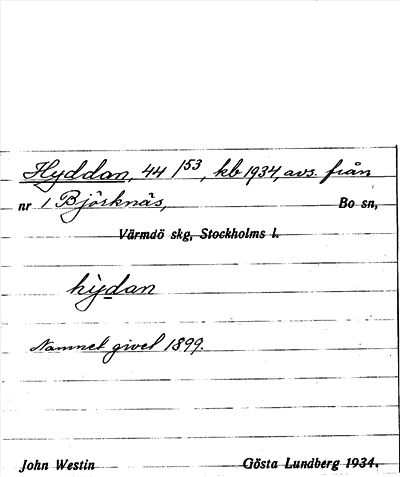 Hyddan, 44/53, kb 1934, avs. från
nr 1 Björknäs, Bo sn,
Värmdö skg, Stockholms l.
hỳdan
Namnet givet 1899.
John Westin Gösta Lundberg 1934.